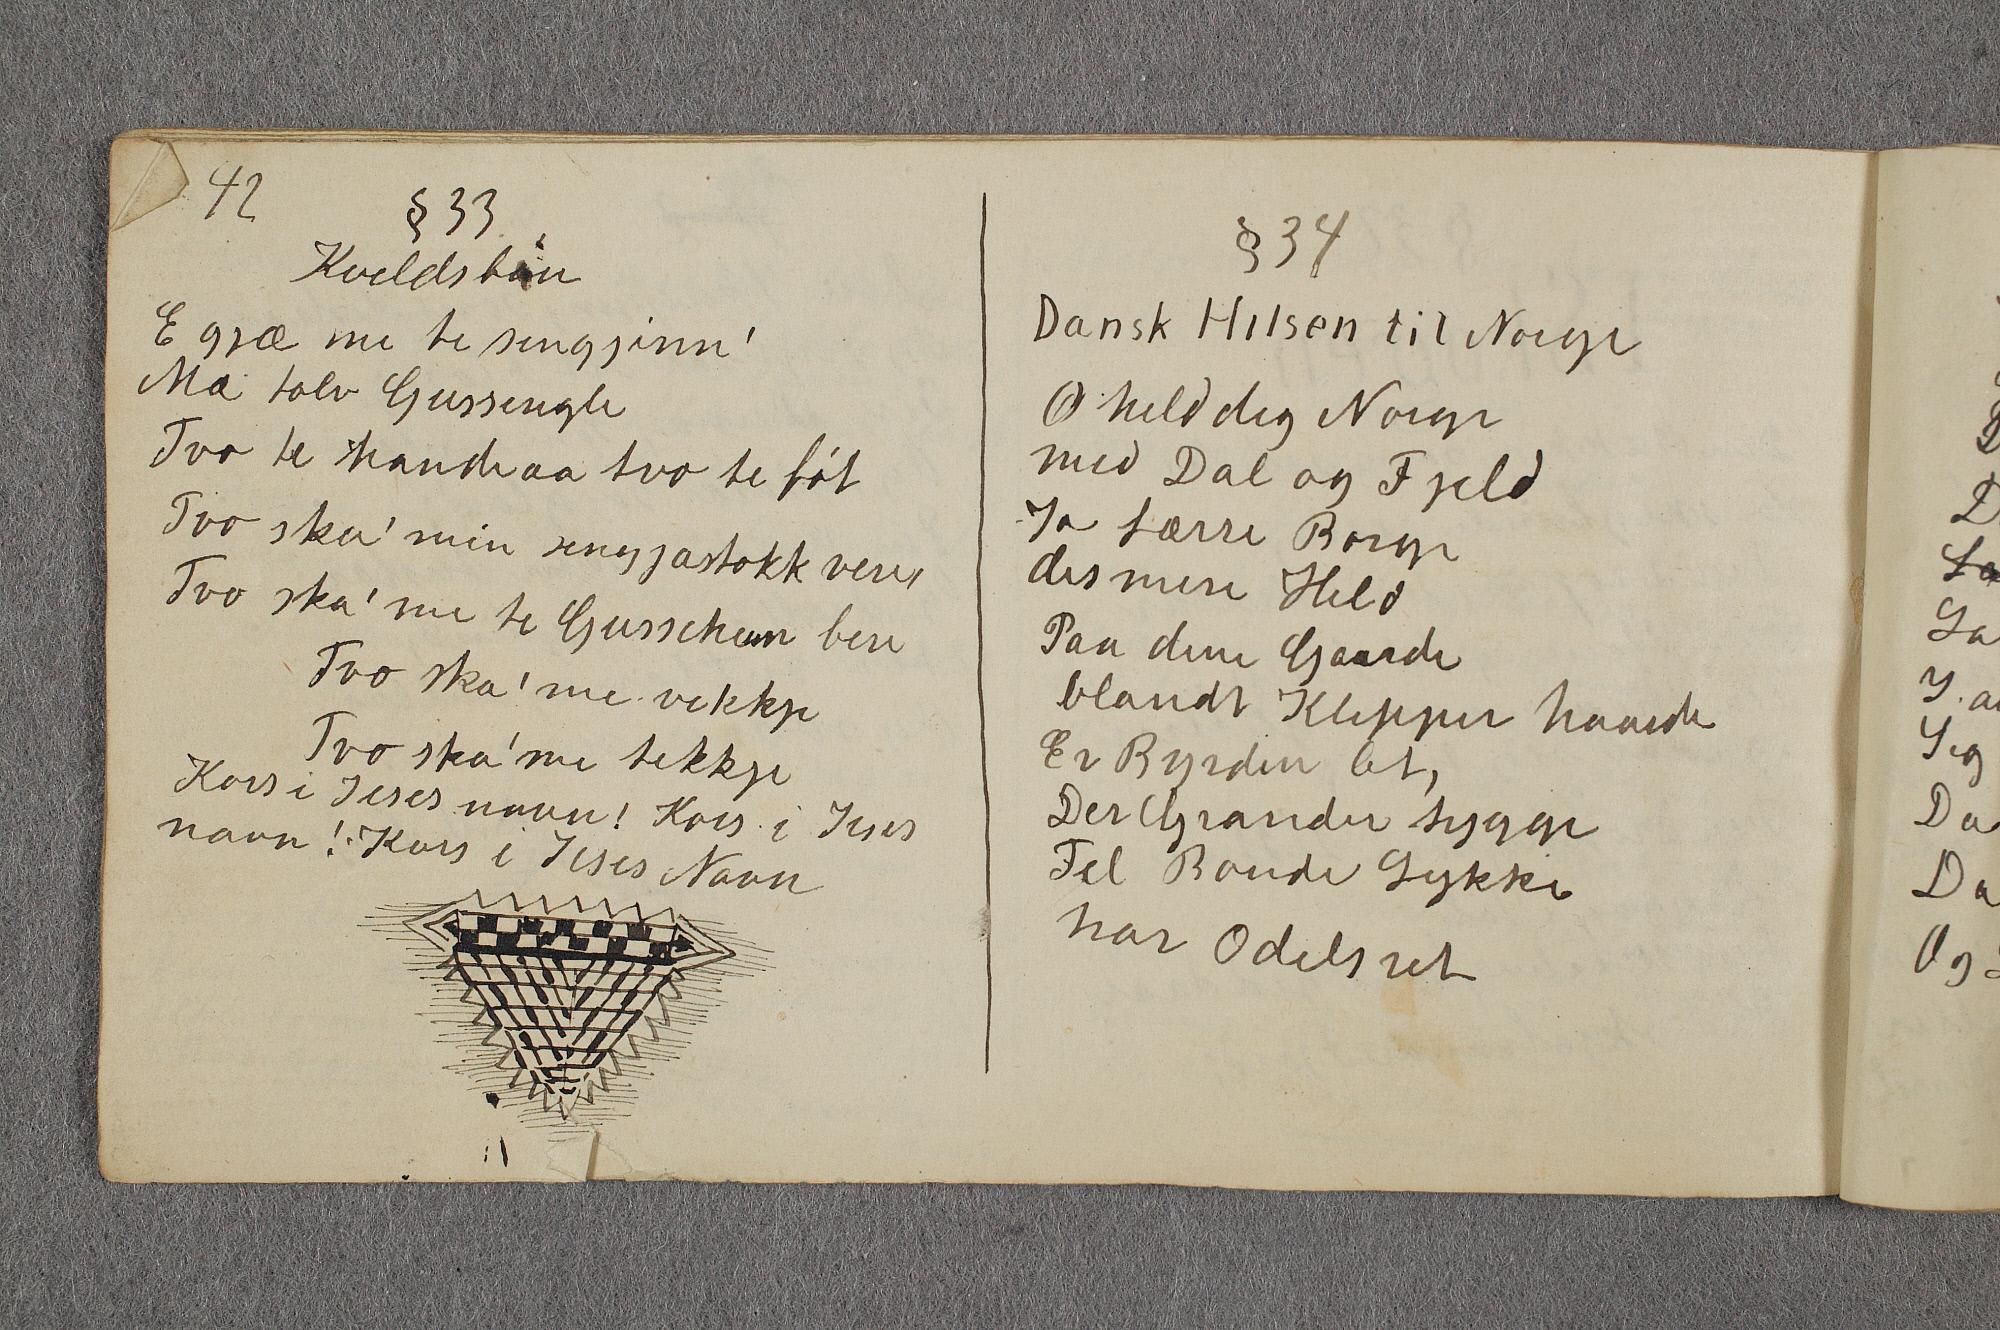 42
§ 33
Kveldsbøn
E gjæ me te sengjinn'
Mæ tolv Gussengle
Tvo te handeaa tvo te føt
Tvo ska' min sengjastokk vere,
Tvo ska' me te Gussehem bere
Tvo ska' me vekkje
Tvo ska' me tekkje
Kors i Jeses navn! Kors i Jeses
navn! Kors i Jeses Navn
§ 34
Dansk Hilsen til Norge
O held dig Norge
med Dal og Fjeld
Jo færre Borge
des mere Held
Paa dine Gaarde
blandt Klipper haarde
Er Byrden let,
Der Grander bygge
Fel Bonde Lykke
har Odelsret